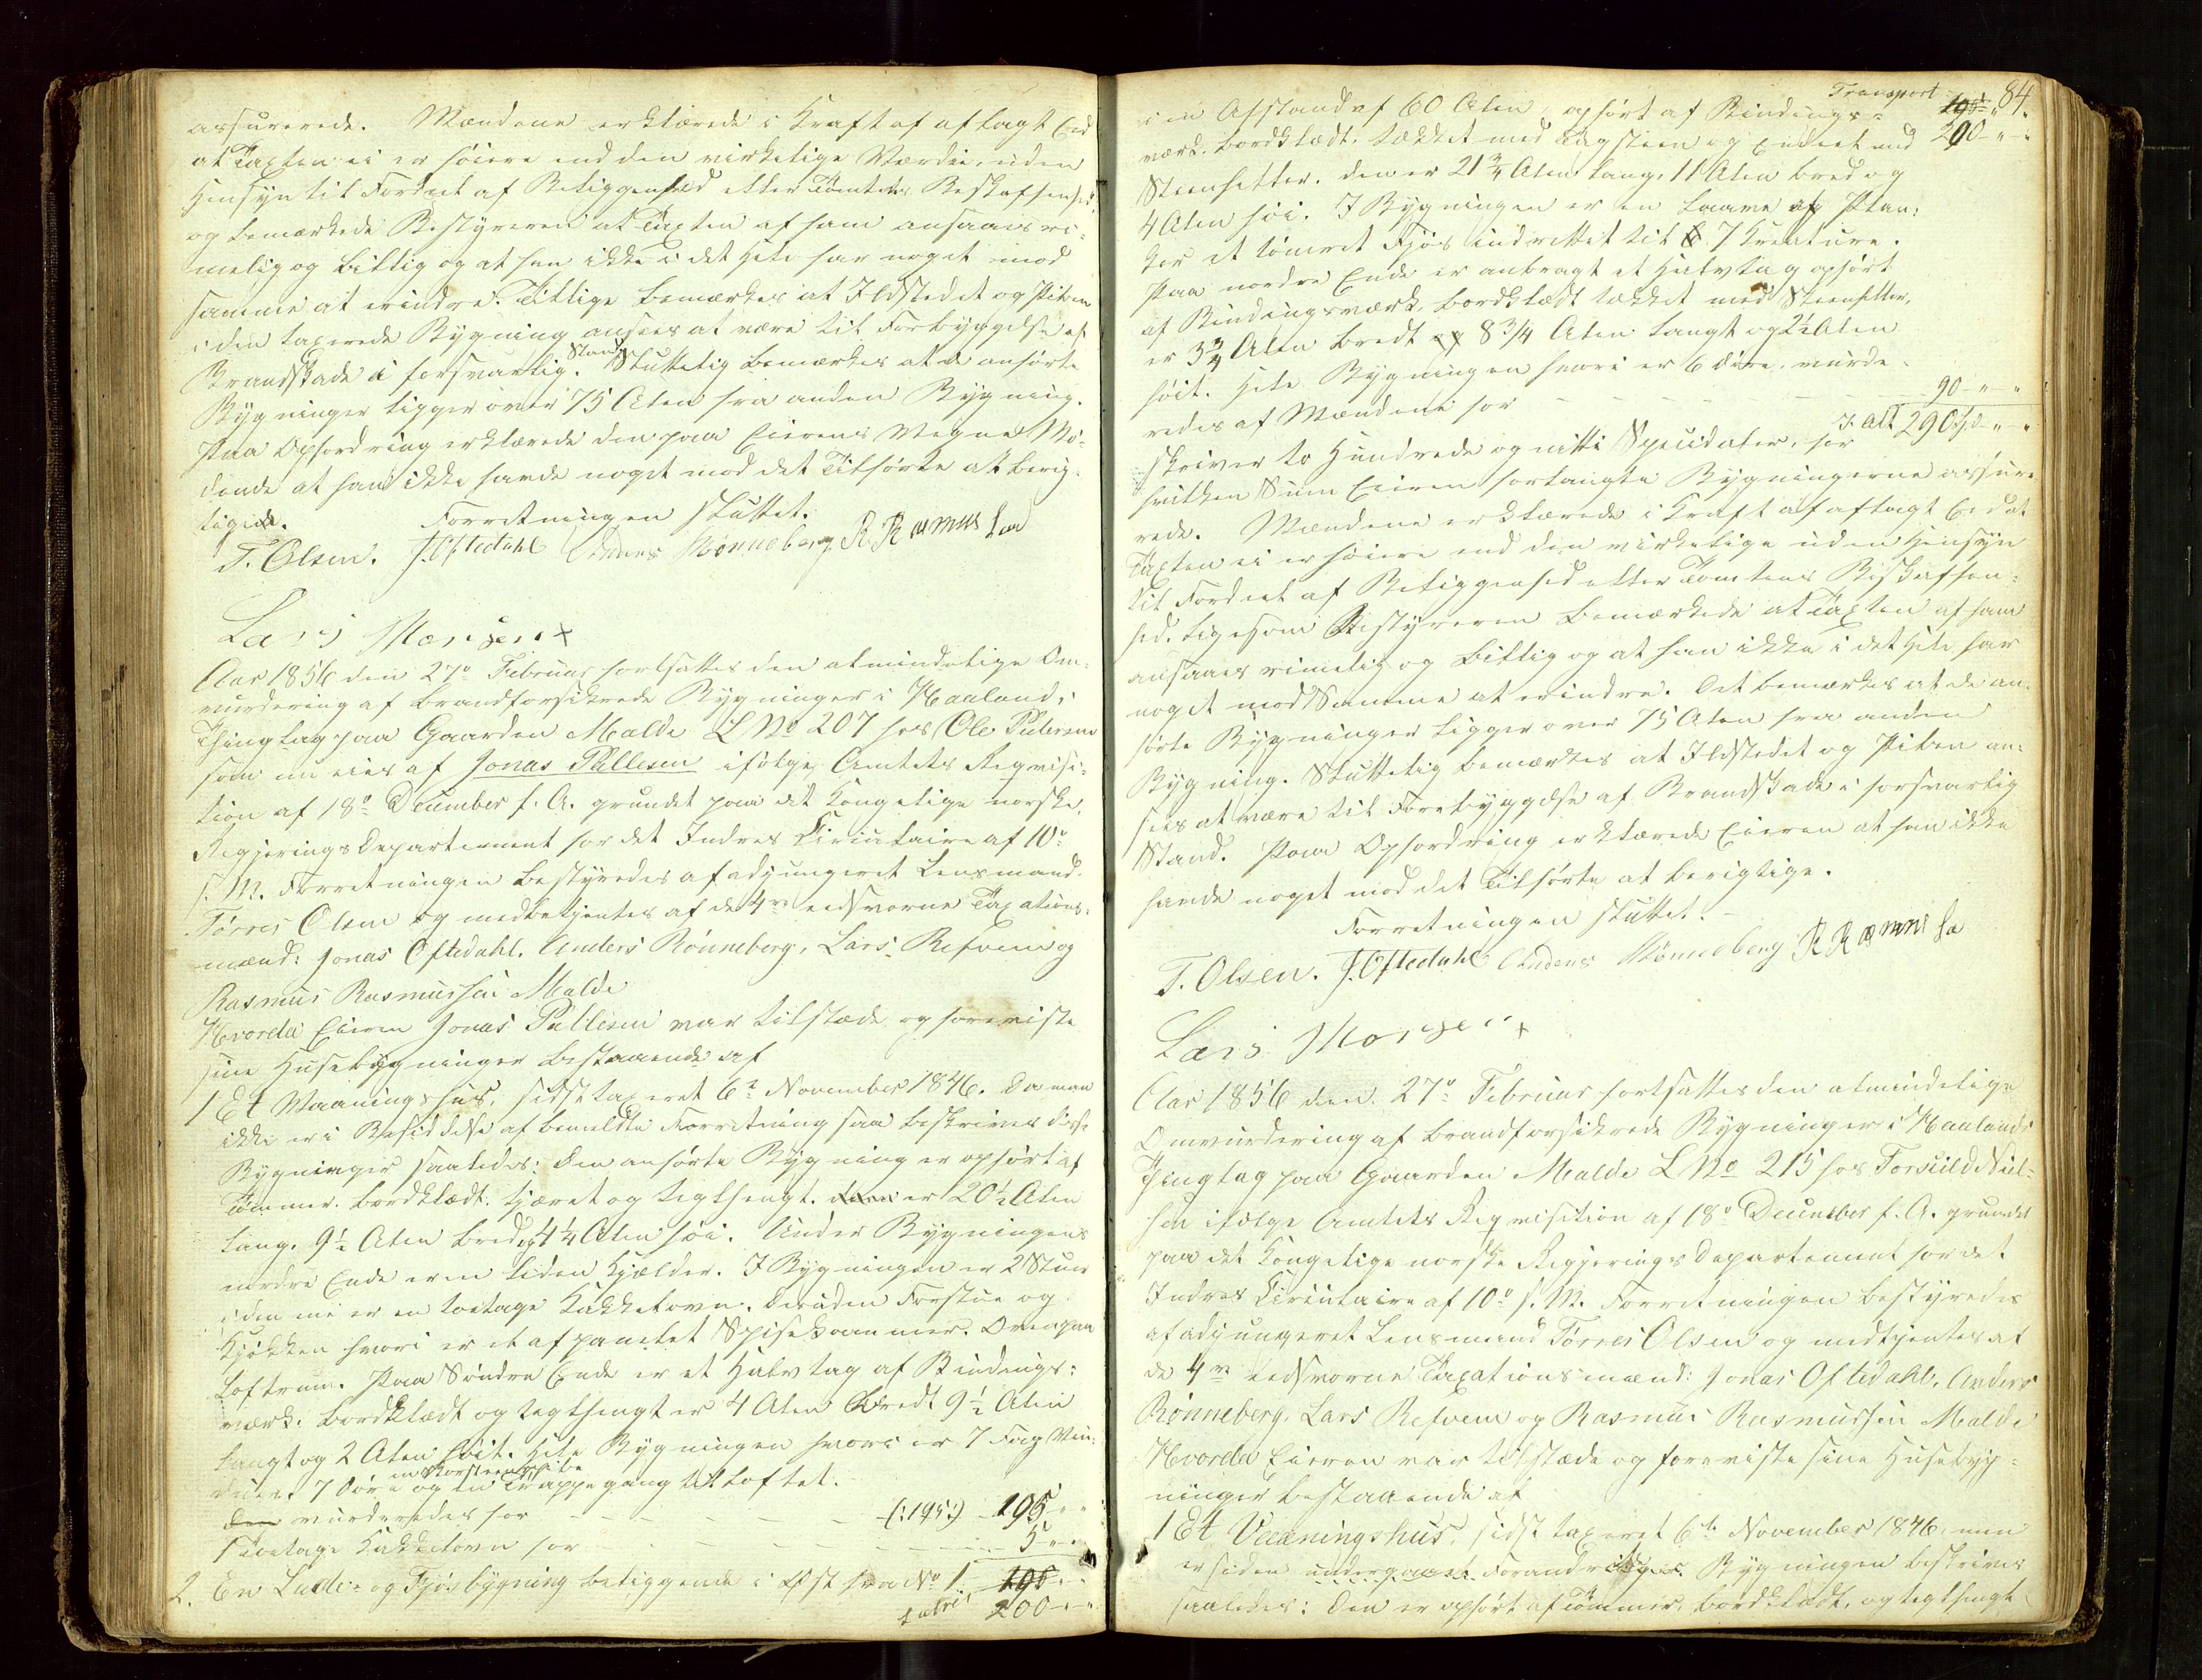 assurerede. Mændene erklærede i Kraft af aflagt Eed
at Taxten ei er høiere end den virkelige Værdie, uden
Hensyn til Fordeel af Beliggenhed eller Tomtens Beskaffenhed,
og bemærkede Bestyreren at Taxten af ham ansaaes ri-
melig og billig og at han ikke i det Hele har noget imod
samme at erindre. Tillige bemærkes at Ildstedet og Piben
i den taxerede Bygning ansees at være til Forebyggelse af
Brandskade i forsvarlig Stand. Sluttelig bemærkes at de anførte
Bygninger ligger over 75 Alen fra anden Bygning.
Paa Opfordring erklærede den paa Eierens Vegne Mø-
dende at han ikke havde noget mod det Tilførte at berig-
tigede. Forretningen sluttet.
T. Olsen. J. Oftedahl Anders Rønneberg R Rasmus Sen
Lars Monsen x
Aar 1856 den 27de Februar fortsattes den almindelige Om-
vurdering af brandforsikrede Bygninger i Haalands
Thinglag paa Gaarden Malde L No 207 hos Ole Pedersen
som nu eies af Jonas Pallesen ifølge Amtets Reqvisi-
tion af 18de December f. A. grundet paa det Kongelige norske
Regjerings Departement for det Indres Circulaire af 10de
s. M. Forretningen bestyredes af adjungeret Lensmand
Tørres Olsen og medbetjentes af de 4re eedsvorne Taxations-
mænd: Jonas Oftedahl, Anders Rønneberg, Lars Refven og
Rasmus Rasmussen Malde
Hvorda Eieren Jonas Pallesen var tilstæde og foreviste
sine Husebygninger bestaaende af
1 Et Vaaningshus, sidst taxeret 6te November 1846. Da man
ikke er i Besiddelse af bemeldte Forretning saa beskrives disse
Bygninger saaledes: Den anførte Bygning er opført af
Tømmer, bordklædt, tjæret og teglhængt. er 20½ Alen
lang, 9½ Alen bred og 4¼ Alen høi. Under Bygningens
nordre Ende er en liden Kjælder. I Bygningen er 2 Stuer
i den ene er en toetages Kakkelovn. Desuden Forstue og
Kjøkken hvori er et afpanelet Spisekammer. Ovenpaa
Loftrum. Paa Søndre Ende er et Halvtag af Bindings-
værk, bordklædt og teglhængt er 4 Alen bredt 9½ Alen
langt og 2 Alen høit. Hele Bygningen hvori er 7 Fag Vin-
duer, 7 Døre en Skorsteenspibe og en Trappegang til Loftet.
den vurderedes for - - - - - (:195:) 195 " "
1 toetages Kakkelovn for - - - - - 5 " "
2. En Lade- og Fjøsbygning beliggende i Øst fra No 1 195 " "
Latus 200 " "
Transport 195 " 84.
i en Afstand af 60 Alen, opført af Bindings- 200 " "
værk, bordklædt, tækket med Tagsteen og endeel med
Steenheller. den er 21¾ Alen lang, 11 Alen bred og
4 Alen høi. I Bygningen er en Laave af Plan-
ker et tømret Fjøs indrettet til 7 Kreature.
Paa nordre Ende er anbragt et Halvtag opført
af Bindingsværk, bordklædt tækket med Steenheller,
er 3¾ Alen bredt og 8¾ Alen langt og 2½ Alen
høit. Hele Bygningen hvori er 6 Døre, vurde-
redes af Mændene for - - - - - 90 " "
I alt 290 Spd " "
skriver to Hundrede og nitti Speciedaler, for
hvilken Sum Eieren forlangte Bygningerne assure-
rede. Mændene erklærede i Kraft af aflagt Eed at
Taxten ei er høiere end den virkelige uden Hensyn
til Fordeel af Beliggenhed eller Tomtens Beskaffen-
hed. ligesom Bestyreren bemærkede at Taxten af ham
ansaaes rimelig og billig og at han ikke i det Hele har
noget mod Samme at erindre. Det bemærkes at de an-
førte Bygninger ligger over 75 Alen fra anden
Bygning. Sluttelig bemærkes at Ildstedet og Piben an-
sees at være til Forebyggelse af Brandskade i forsvarlig
Stand. Paa Opfordring erklærede Eieren at han ikke
havde noget mod det Tilførte at berigtige.
Forretningen sluttet.
T. Olsen. J. Oftedahl Anders Rønneberg R Rasmus Se
Lars Monsen x
Aar 1856 den 27de Februar fortsattes den almindelige
Omvurdering af brandforsikrede Bygninger i Haalands
Thinglag paa Gaarden Malde L No 215 hos Torkild Niel-
sen ifølge Amtets Reqvisition af 18de December f. A. grundet
paa det Kongelige norske Regjerings Departement for det
Indres Circulaire af 10de s. M. Forretningen bestyredes
af adjungeret Lensmand Tørres Olsen og medtjentes af
de 4re Eedsvorne Taxationsmænd: Jonas Oftedahl, Anders
Rønneberg, Lars Refven og Rasmus Rasmussen Malde
Hvorda Eieren var tilstæde og foreviste sine Husebyg-
ninger bestaaende af
1 Et Vaaningshus, sidst taxeret 6te November 1846, men
er siden undergaaet Forandringer. Bygningen beskrives
saaledes: Den er opført af Tømmer, bordklædt, og teglhængt